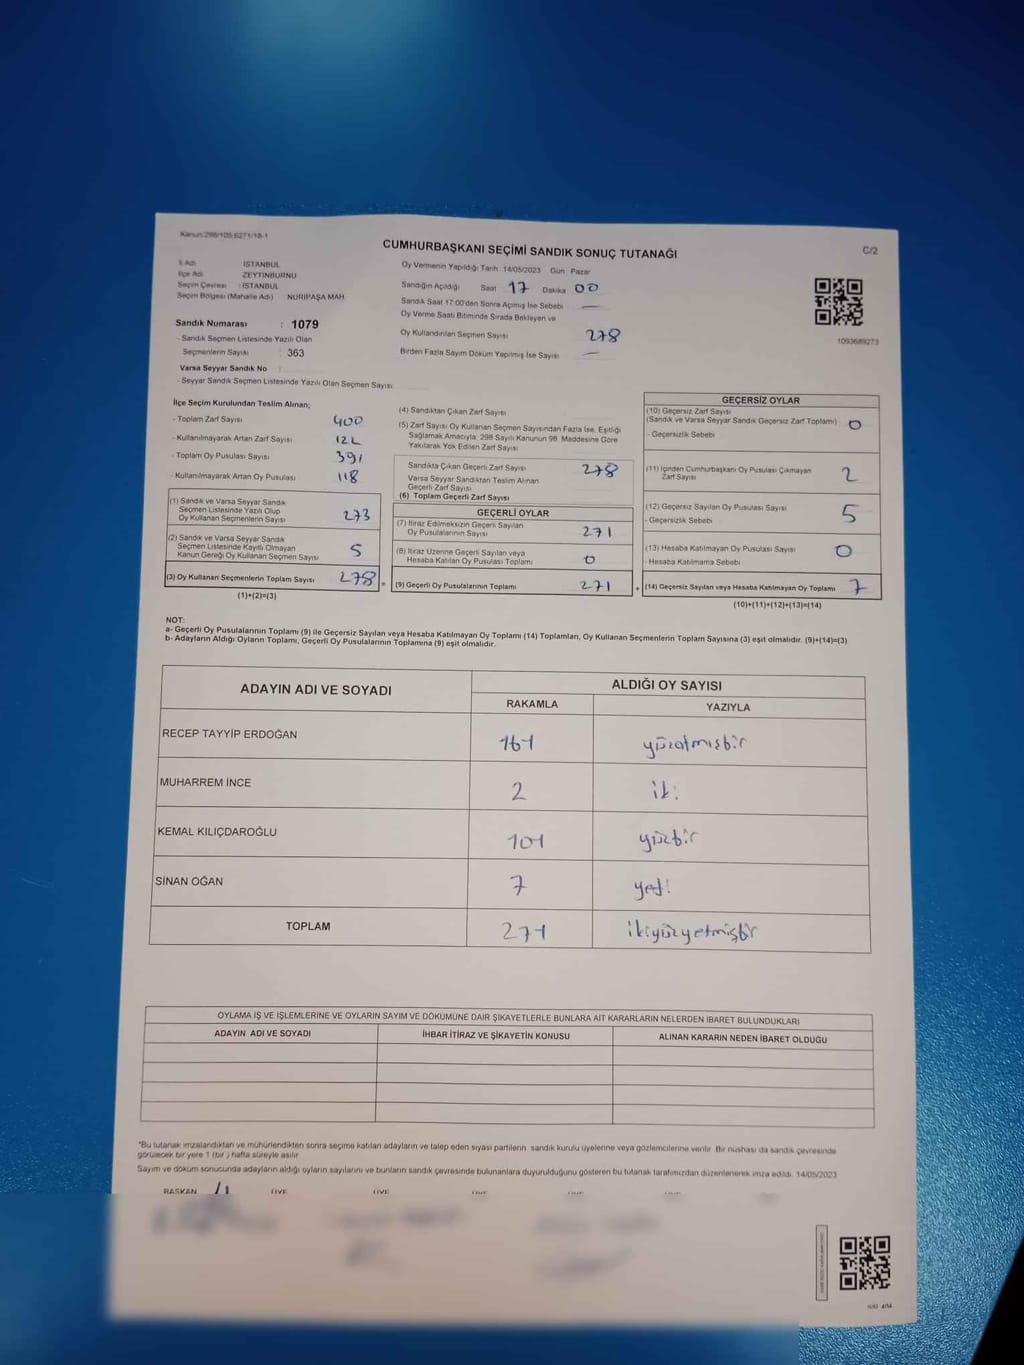 Kanun:298/105,6271/18-1
C/2
CUMHURBAŞKANI SEÇİMİ SANDIK SONUÇ TUTANAĞI
İl Adı İSTANBUL
İlçe Adı ZEYTİNBURNU
Seçim Çevresi : İSTANBUL
Seçim Bölgesi (Mahalle Adı) NURİPAŞA MAH.
Oy Vermenin Yapıldığı Tarih: 14/05/2023 Gün Pazar
Sandığın Açıldığı Saat 17 Dakika 00
Sandık Saat 17:00'den Sonra Açılmış İse Sebebi —
Oy Verme Saati Bitiminde Sırada Bekleyen ve
Oy Kullandırılan Seçmen Sayısı 278
Birden Fazla Sayım Döküm Yapılmış İse Sayısı —
1093689273
Sandık Numarası : 1079
- Sandık Seçmen Listesinde Yazılı Olan
Seçmenlerin Sayısı : 363
Varsa Seyyar Sandık No :
- Seyyar Sandık Seçmen Listesinde Yazılı Olan Seçmen Sayısı :
İlçe Seçim Kurulundan Teslim Alınan;
- Toplam Zarf Sayısı 400
- Kullanılmayarak Artan Zarf Sayısı 122
- Toplam Oy Pusulası Sayısı 391
- Kullanılmayarak Artan Oy Pusulası 118
(1) Sandık ve Varsa Seyyar Sandık
Seçmen Listesinde Yazılı Olup
Oy Kullanan Seçmenlerin Sayısı 273
(2) Sandık ve Varsa Seyyar Sandık
Seçmen Listesinde Kayıtlı Olmayan
Kanun Gereği Oy Kullanan Seçmen Sayısı 5
(3) Oy Kullanan Seçmenlerin Toplam Sayısı 278 =
(1)+(2)=(3)
(4) Sandıktan Çıkan Zarf Sayısı
(5) Zarf Sayısı Oy Kullanan Seçmen Sayısından Fazla İse, Eşitliği
Sağlamak Amacıyla, 298 Sayılı Kanunun 98. Maddesine Göre
Yakılarak Yok Edilen Zarf Sayısı
Sandıkta Çıkan Geçerli Zarf Sayısı 278
Varsa Seyyar Sandıktan Teslim Alınan
Geçerli Zarf Sayısı
(6) Toplam Geçerli Zarf Sayısı
GEÇERLİ OYLAR
(7) İtiraz Edilmeksizin Geçerli Sayılan
Oy Pusulalarının Sayısı 271
(8) İtiraz Üzerine Geçerli Sayılan veya
Hesaba Katılan Oy Pusulası Toplamı 0
(9) Geçerli Oy Pusulalarının Toplamı 271 +
GEÇERSİZ OYLAR
(10) Geçersiz Zarf Sayısı
(Sandık ve Varsa Seyyar Sandık Geçersiz Zarf Toplamı) 0
- Geçersizlik Sebebi
(11) İçinden Cumhurbaşkanı Oy Pusulası Çıkmayan
Zarf Sayısı 2
(12) Geçersiz Sayılan Oy Pusulası Sayısı 5
- Geçersizlik Sebebi
(13) Hesaba Katılmayan Oy Pusulası Sayısı 0
- Hesaba Katılmama Sebebi
(14) Geçersiz Sayılan veya Hesaba Katılmayan Oy Toplamı 7
(10)+(11)+(12)+(13)=(14)
NOT:
a- Geçerli Oy Pusulalarının Toplamı (9) ile Geçersiz Sayılan veya Hesaba Katılmayan Oy Toplamı (14) Toplamları, Oy Kullanan Seçmenlerin Toplam Sayısına (3) eşit olmalıdır. (9)+(14)=(3)
b- Adayların Aldığı Oyların Toplamı, Geçerli Oy Pusulalarının Toplamına (9) eşit olmalıdır.
ADAYIN ADI VE SOYADI ALDIĞI OY SAYISI
RAKAMLA YAZIYLA
RECEP TAYYİP ERDOĞAN 161 yüzatmışbir
MUHARREM İNCE 2 iki
KEMAL KILIÇDAROĞLU 101 yüzbir
SİNAN OĞAN 7 yedi
TOPLAM 271 ikiyüzyetmişbir
OYLAMA İŞ VE İŞLEMLERİNE VE OYLARIN SAYIM VE DÖKÜMÜNE DAİR ŞİKAYETLERLE BUNLARA AİT KARARLARIN NELERDEN İBARET BULUNDUKLARI
ADAYIN ADI VE SOYADI İHBAR İTİRAZ VE ŞİKAYETİN KONUSU ALINAN KARARIN NEDEN İBARET OLDUĞU
*Bu tutanak imzalandıktan ve mühürlendikten sonra seçime katılan adayların ve talep eden siyasi partilerin sandık kurulu üyelerine veya gözlemcilerine verilir. Bir nüshası da sandık çevresinde
görülecek bir yere 1 (bir ) hafta süreyle asılır.
Sayım ve döküm sonucunda adayların aldığı oyların sayılarını ve bunların sandık çevresinde bulunanlara duyurulduğunu gösteren bu tutanak tarafımızdan düzenlenerek imza edildi. 14/05/2023
BAŞKAN ÜYE ÜYE